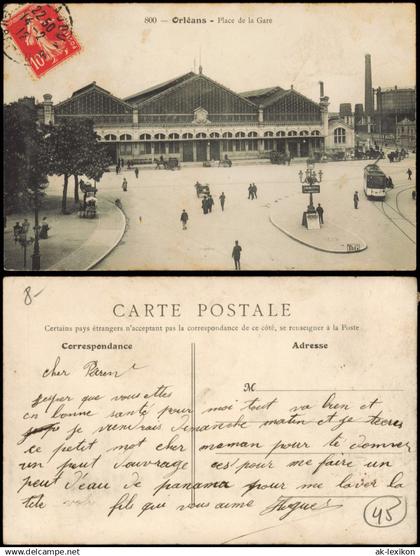 800 - Orléans - Place de la Gare
22-50
10
8-
CARTE POSTALE
Certains pays étrangers n'acceptant pas la correspondance de ce côté, se renseigner à la Poste
Correspondance
Adresse
M
cher Paren
que vous ettes
en bonne santé pour moi tout va bien et
je vienrais dimanche matin et je
ce petit mot cher maman pour te donner
un peut d'ouvrage ces pour me faire un
peut d'eau de panama pour me laver la
tete fils que vous aime Hugues
45
www.delcampe.net
ak-lexikon